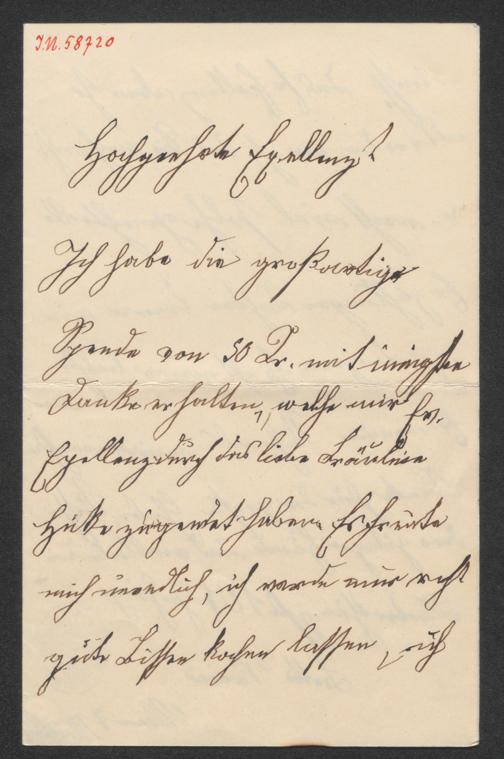 J.N. 58720
Hochgeehrte Exellenz!
Ich habe die großartige
Spende von 50 Kr. mit innigsten
Danke erhalten, welche mir Ev.
Exellenz durch das liebe Fräulein
zugendet haben. Es freute
mich unendlich, ich werde mir recht
gute Bissen kochen lassen, ich